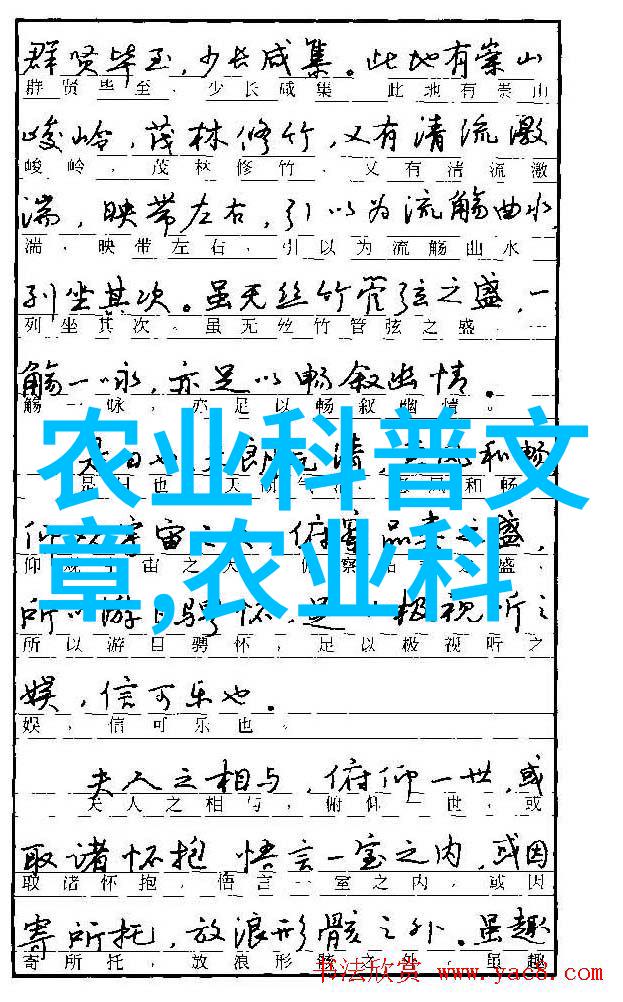 群贤毕至，少长咸集。此地有崇山
群贤毕至，少长咸集。此地有崇山
峻岭，茂林修竹，又有清流激
峻岭，茂林修竹，又有清流激
湍，映带左右，引以为流觞曲水，
湍，映带左右，引以为流觞曲水
列坐其次。虽无丝竹管弦之盛，一
列坐其次。虽无丝竹管弦之盛，一
觞一咏，亦足以畅叙幽情。
觞一咏，亦足以畅叙幽情。
农业科普文
是日也，天朗气清，和畅
是日也，天朗气清，和畅
仰观宇宙之大，俯察品类之盛，
仰观宇宙之大，俯察品类之盛，
章,农业科
所以游目骋怀，足以极视听之
所以游目骋怀，足以极视听之
娱，信可乐也。
娱，信可乐也。
夫人之相与，俯仰一世，或
夫人之相与，俯仰一世，或
取诸怀抱，悟言一室之内，或因
取诸怀抱，悟言一室之内，或因
寄所托，放浪形骸之外。虽趣
寄所托，放浪形骸之外。虽趣
书法欣赏 www.yac8.com